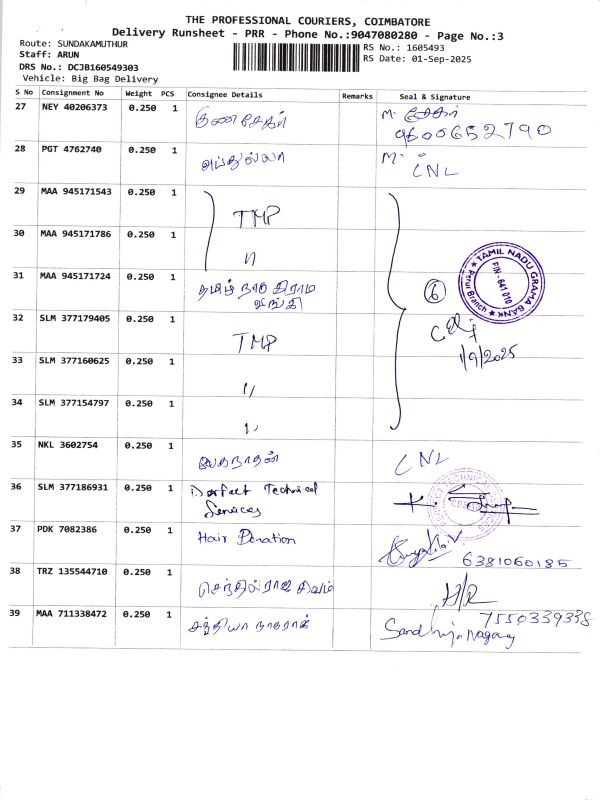 THE PROFESSIONAL COURIERS, COIMBATORE
Delivery Runsheet - PRR - Phone No.:9047080280 - Page No.:3
Route: SUNDAKAMUTHUR
RS No.: 1605493
Staff: ARUN
RS Date: 01-Sep-2025
DRS No.: DCJB160549303
Vehicle: Big Bag Delivery
S No Consignment No Weight PCS Consignee Details Remarks Seal & Signature
27 NEY 40206373 0.250 1 குணசேகர் M. சேகர்
9600652790
28 PGT 4762740 0.250 1 அப்துல்லா M.
CNL
29 MAA 945171543 0.250 1 TMP
30 MAA 945171786 0.250 1 "
TAMIL NADU GRAMA BANK
PIN - 641 010
Perur Branch
31 MAA 945171724 0.250 1 தமிழ் நாடு கிராம
வங்கி
6
32 SLM 377179405 0.250 1 TMP
1/9/2025
33 SLM 377160625 0.250 1 "
34 SLM 377154797 0.250 1 "
35 NKL 3602754 0.250 1 CNL
36 SLM 377186931 0.250 1 Perfect Technical
Services
37 PDK 7082386 0.250 1 Hair Donation
6381060185
38 TRZ 135544710 0.250 1 செந்தில்ராஜ் சிவம் H/R
7550339338
39 MAA 711338472 0.250 1 சந்தியா நாகராஜ் Sandhiya Nagaraj